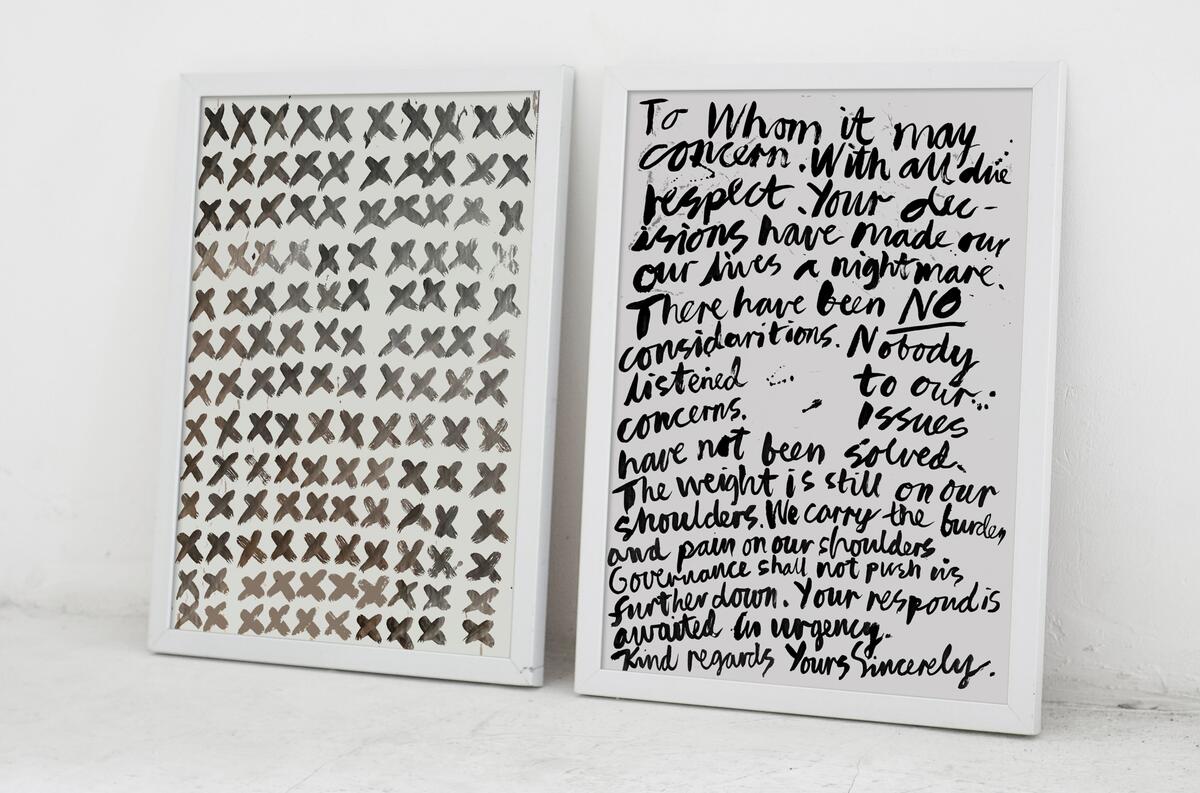 To Whom it may
concern. With all due
respect. Your dec-
isions have made our
our lives a nightmare.
There have been NO
considaritions. Nobody
listened to our
concerns. Issues
have not been solved.
The weight is still on our
shoulders. We carry the burden
and pain on our shoulders
Governance shall not push us
further down. Your respond is
awaited in urgency.
Kind regards Yours Sincerely.